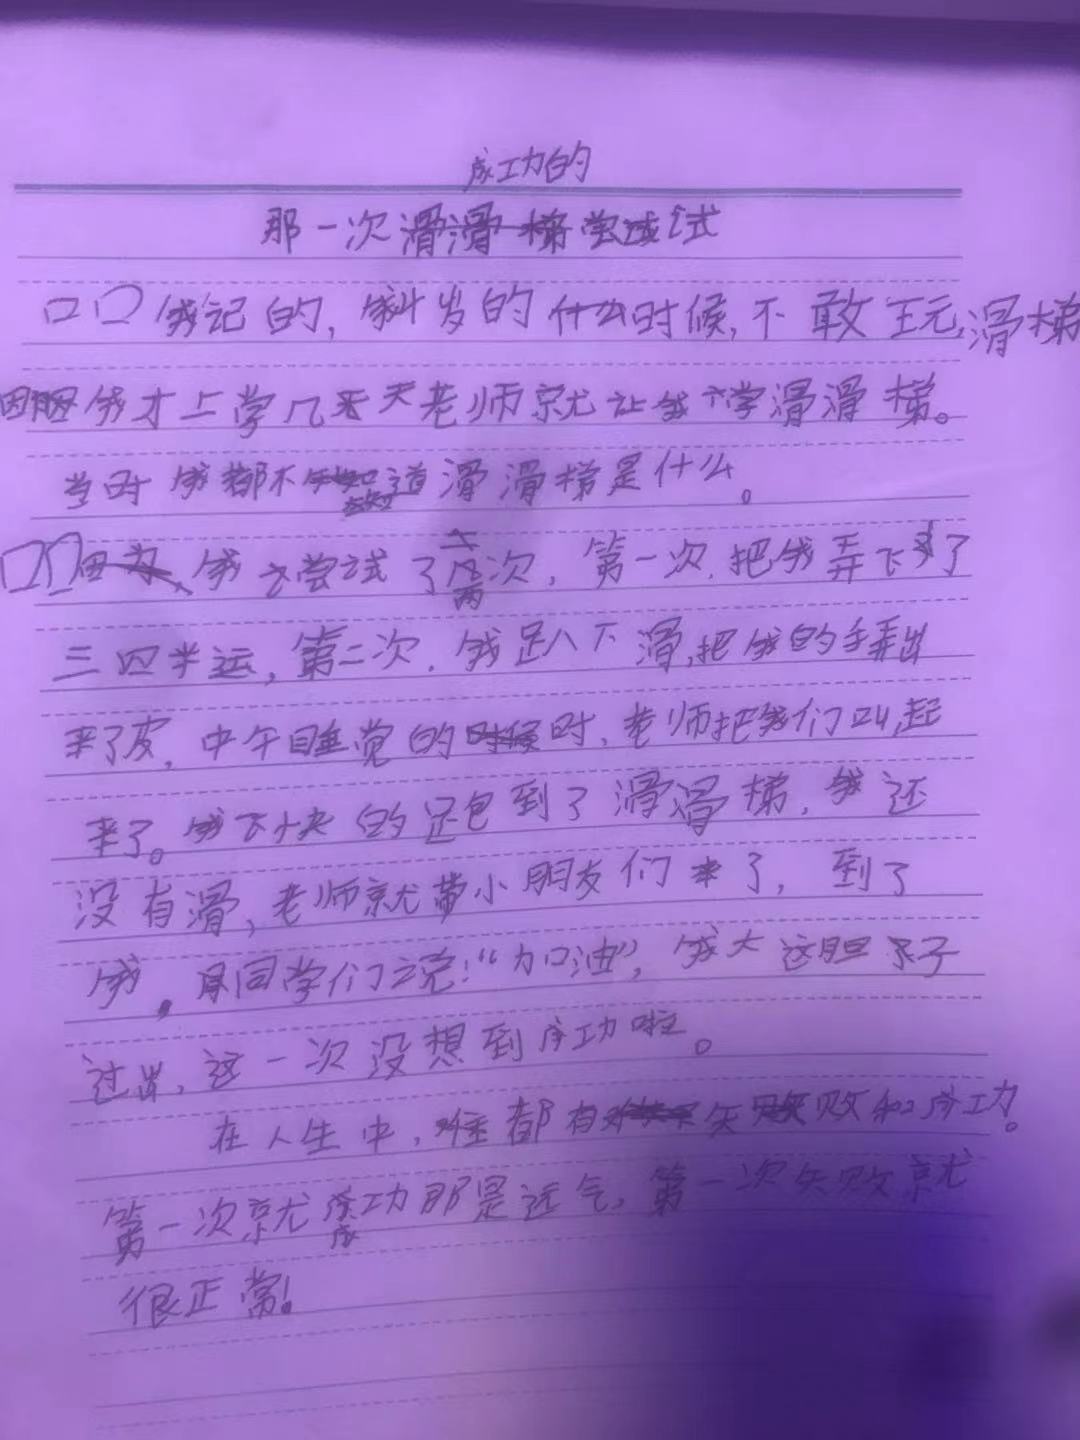 成功的
那一次滑滑梯尝试
我记的,我4岁的什么时候,不敢玩,滑梯
因为我才上学几天天老师就让我个学滑滑梯。
当时我都不知道滑滑梯是什么。
我才尝试了两次,第一次,把我弄飞了
三四米远,第二次,我趴下滑,把我的手弄出
来了皮,中午睡觉的时候时,老师把我们叫起
来了。我下快的还包到了滑滑梯,我还
没有滑,老师就带小朋友们来了,到了
我。同学们说:“加油”,我大这胆子
过出,这一次没想到成功啦。
在人生中,谁都有失败和成功。
第一次就成功那是运气,第一次失败就
很正常!